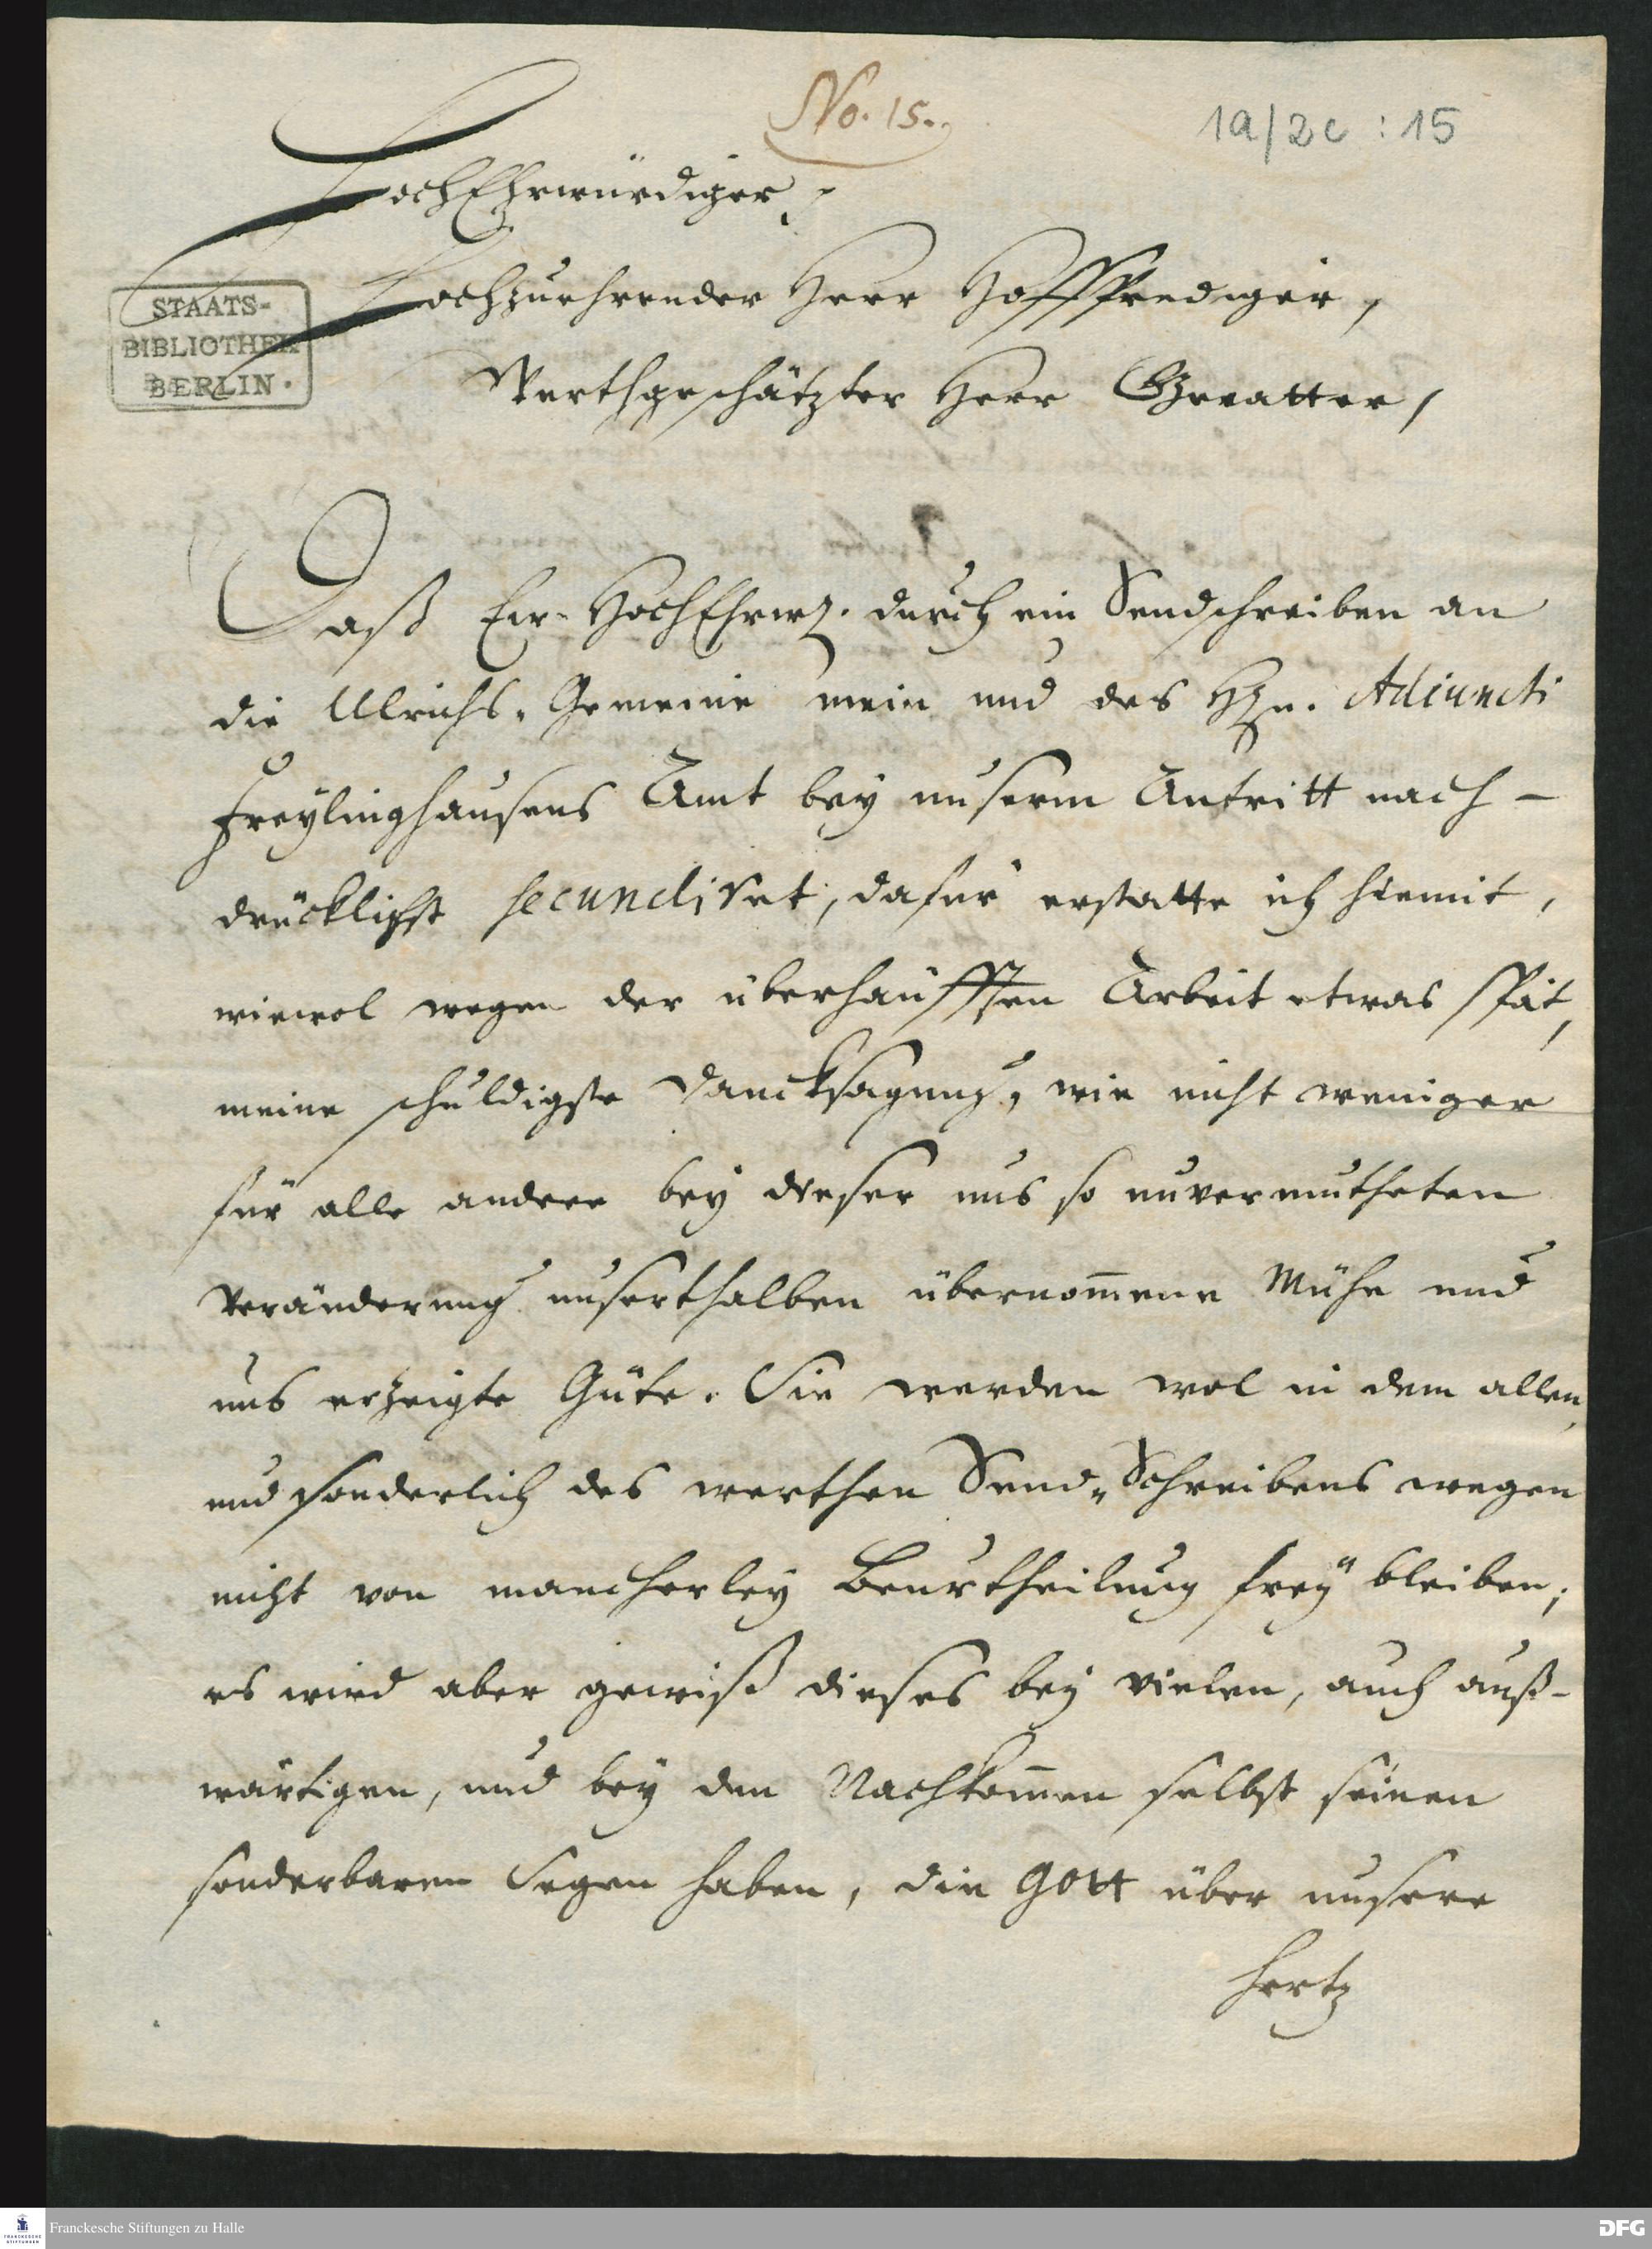 No. 15.
1a/2c : 15
HochEhrwürdiger,
Hochzuehrender Herr HoffPrediger,
Werthgeschätzter Herr Gevatter,
STAATS-
BIBLIOTHEK
BERLIN.
Daß Ew. HochEhrw. durch ein Sendschreiben an
die Ulrichs-Gemeine mein und des Hrn. Adiuncti
Freylinghausens Amt bey unserm Antritt nach-
drücklichst secundiret, dafür erstatte ich hiemit,
wiewol wegen der überhäufften Arbeit etwas spät,
meine schuldigste Dancksagung, wie nicht weniger
für alle andere bey dieser uns so unvermutheten
Veränderung unserthalben übernom̄ene Mühe und
uns erzeigte Güte. Sie werden wol in dem allen,
und sonderlich des werthen Send-Schreibens wegen
nicht von mancherley Beurtheilung frey bleiben;
es wird aber gewiß dieses bey vielen, auch auß-
wärtigen, und bey den Nachkom̄en selbst seinen
sonderbaren Segen haben, die Gott über unsere
Hertz
Franckesche Stiftungen zu Halle
FRANCKESCHE
STIFTUNGEN
DFG